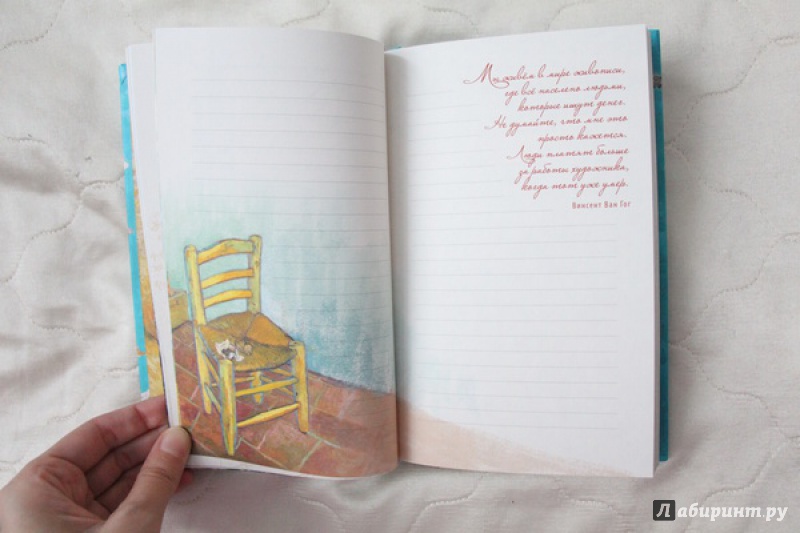 Мы живём в мире живописи,
где всё населено людьми,
которые ищут денег.
Не думайте, что мне это
просто кажется.
Люди платят больше
за работы художника,
когда тот уже умер.
Винсент Ван Гог
Лабиринт.ру